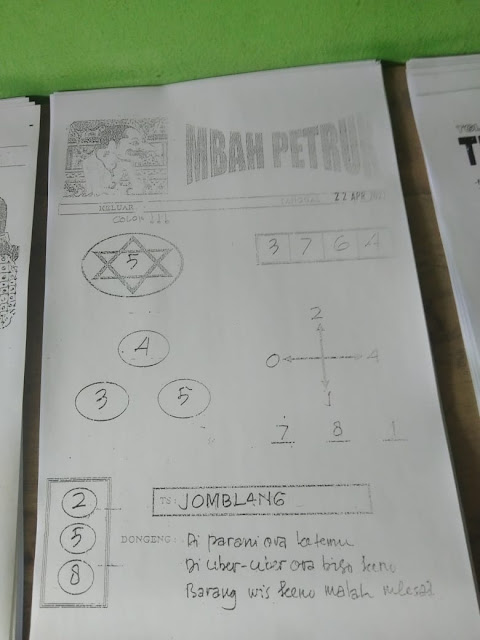 MBAH PETRUK
KELUAR TANGGAL 22 APR
COLOK ↓↓↓
5
3 7 6 4
2
0 4
1
4
3 5
7 8 1
2
5
8
TS: JOMBLANG
DONGENG: Di parani ora ketemu
Di uber-uber ora biso keno
Barang wis keno malah